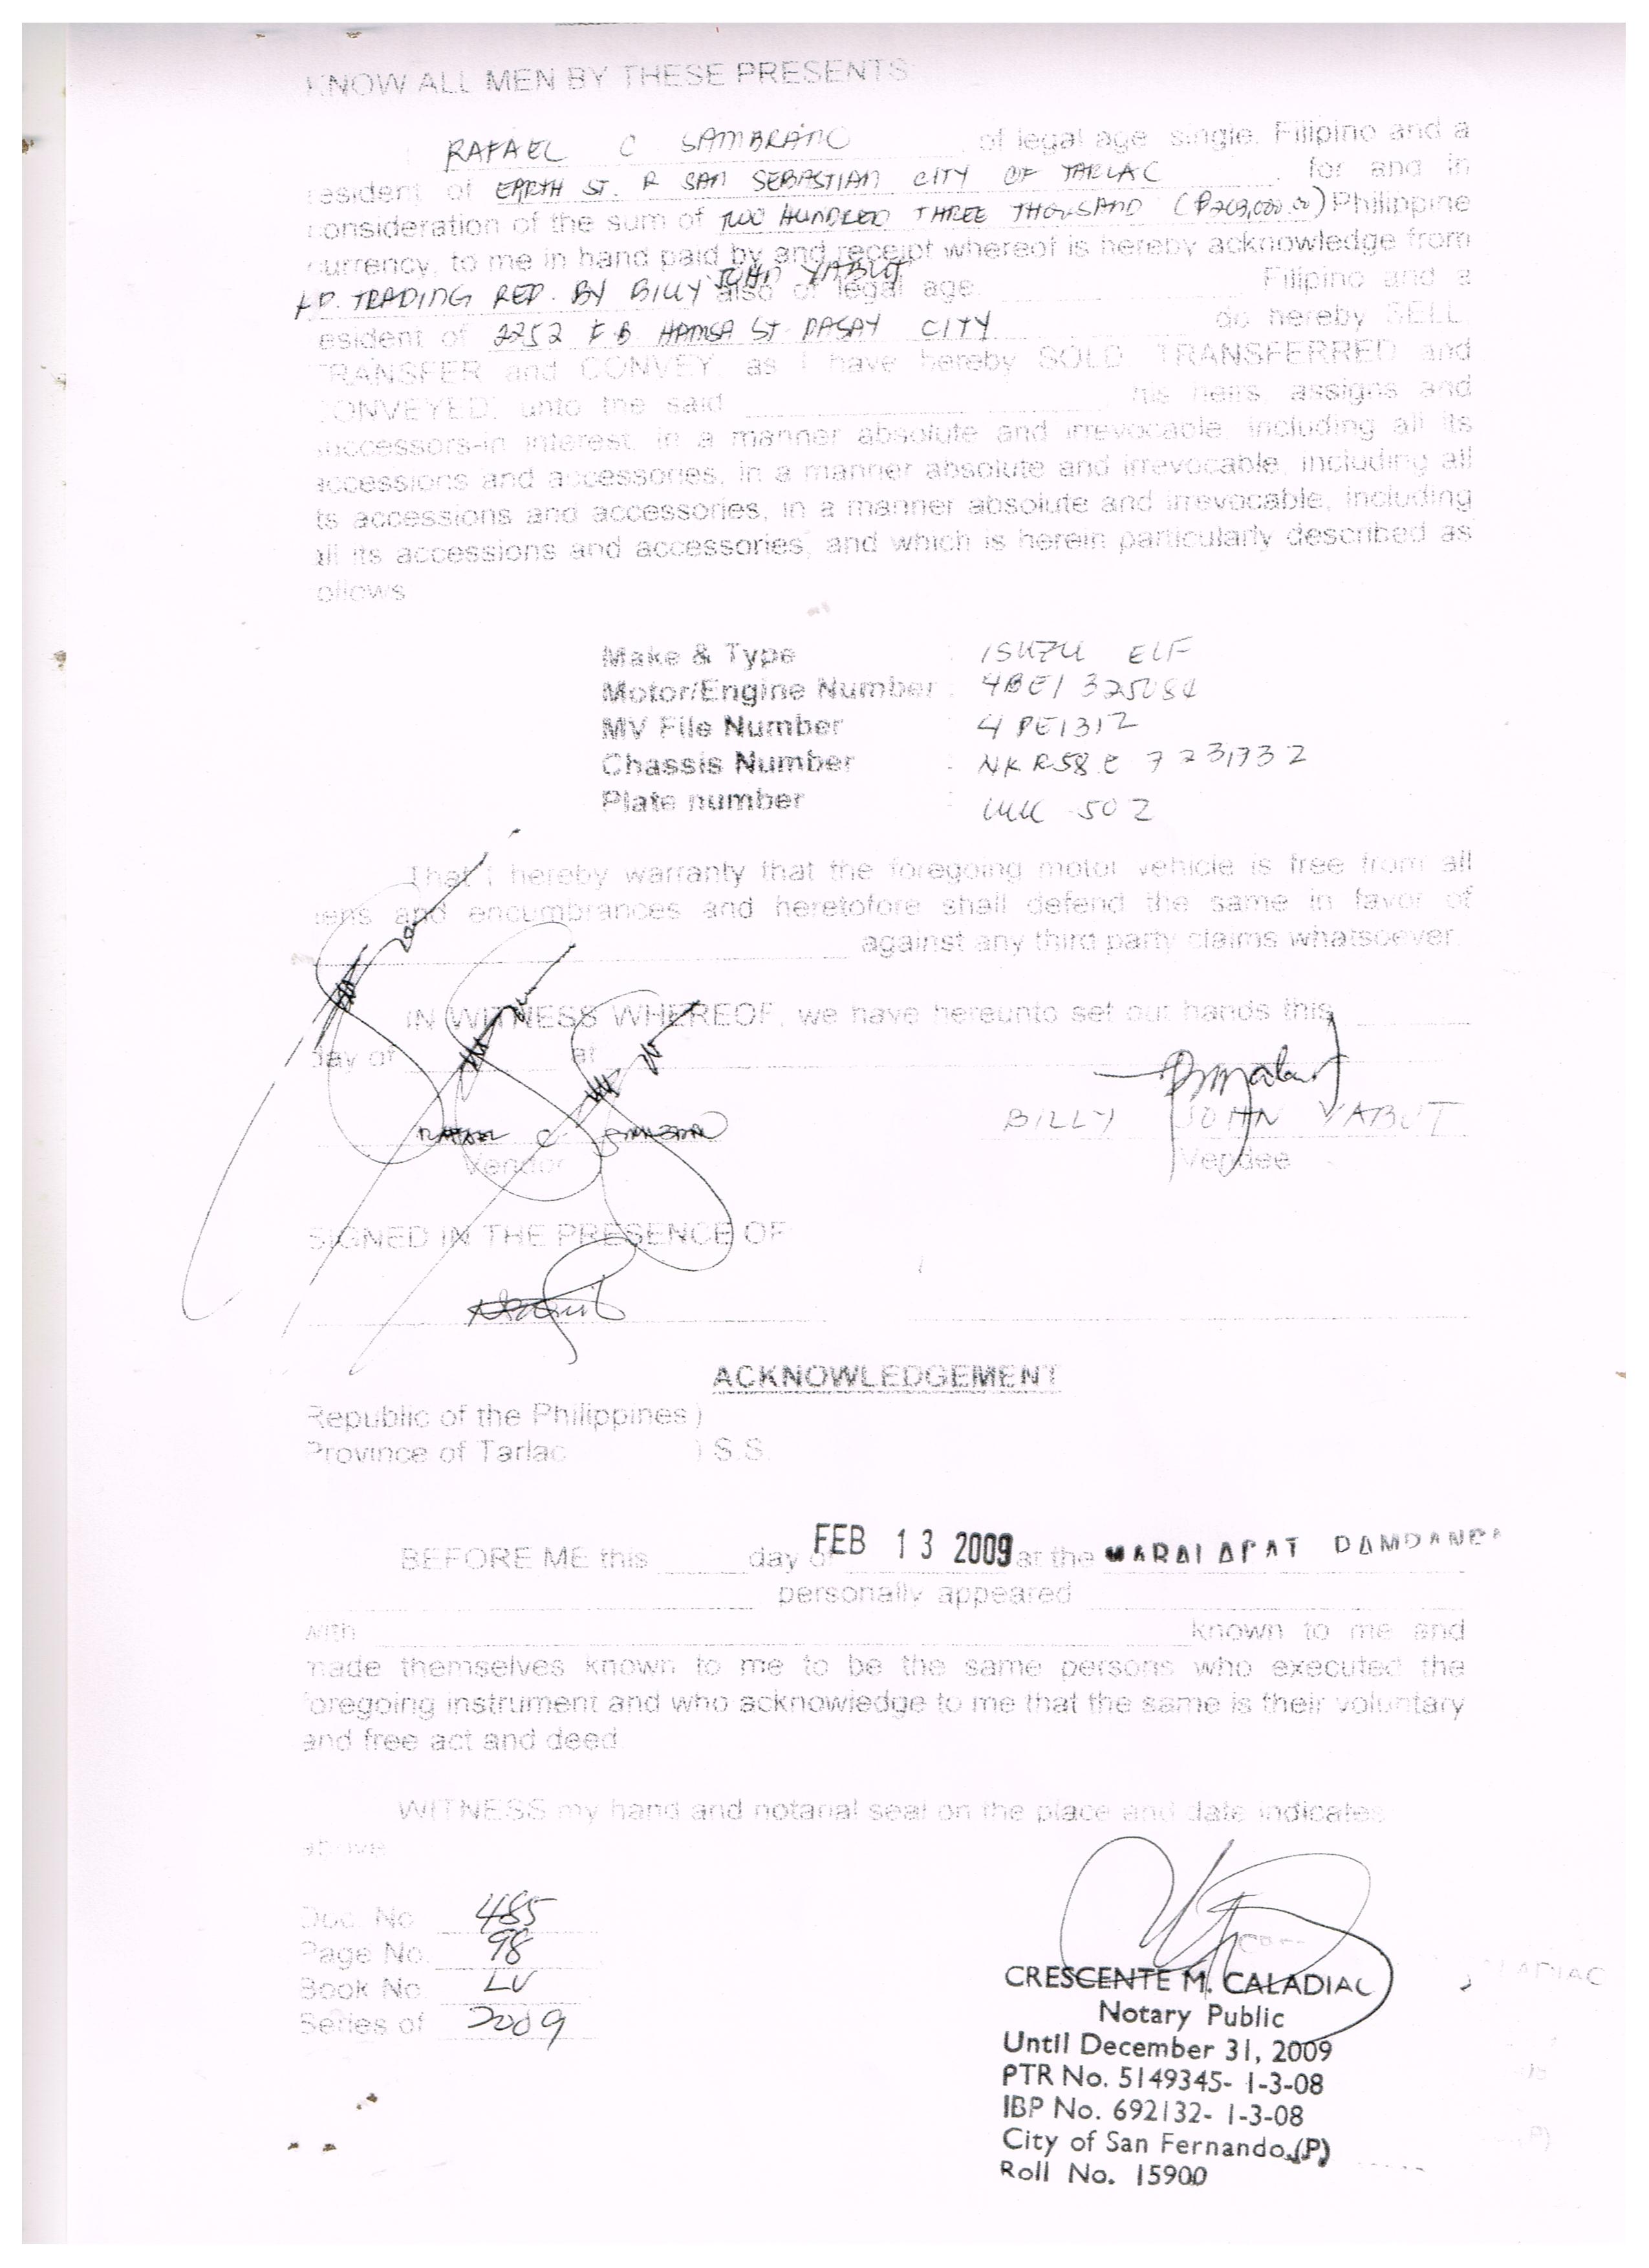 KNOW ALL MEN BY THESE PRESENTS
RAFAEL C SAMBRANO of legal age single, Filipino and a
resident of EARTH ST. R SAN SEBASTIAN CITY OF TARLAC for and in
consideration of the sum of TWO HUNDRED THREE THOUSAND (P203,000.00) Philippine
currency, to me in hand paid by and receipt whereof is hereby acknowledge from
TRADING REP. BY BILLY JOHN YABUT also of legal age, Filipino and a
resident of 2252 F.B HAMSA ST. PASAY CITY do hereby SELL
TRANSFER and CONVEY, as I have hereby SOLD TRANSFERRED and
CONVEYED, unto the said his heirs, assigns and
successors-in interest, in a manner absolute and irrevocable, including all its
accessions and accessories, in a manner absolute and irrevocable, including all
its accessions and accessories, in a manner absolute and irrevocable, including
all its accessions and accessories, and which is herein particularly described as
follows
Make & Type : ISUZU ELF
Motor/Engine Number :
MV File Number
Chassis Number :
Plate number : 502
That I hereby warranty that the foregoing motor vehicle is free from all
liens and encumbrances and heretofore shall defend the same in favor of
against any third party claims whatsoever.
IN WITNESS WHEREOF, we have hereunto set our hands this
day of at
RAFAEL C SAMBRANO BILLY JOHN YABUT
Vendor Vendee
SIGNED IN THE PRESENCE OF
ACKNOWLEDGEMENT
Republic of the Philippines )
Province of Tarlac ) S.S.
BEFORE ME this day of FEB 13 2009 at the
personally appeared
with known to me and
made themselves known to me to be the same persons who executed the
foregoing instrument and who acknowledge to me that the same is their voluntary
and free act and deed.
WITNESS my hand and notarial seal on the place and date indicates
above
Doc. No 485
Page No. 98
Book No. LV
Series of 2009
CRESCENTE M. CALADIAC
Notary Public
Until December 31, 2009
PTR No. 5149345- 1-3-08
IBP No. 692132- 1-3-08
City of San Fernando,(P)
Roll No. 15900